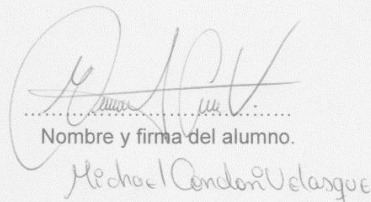 Nombre y firma del alumno.
Michael Condori Velasque